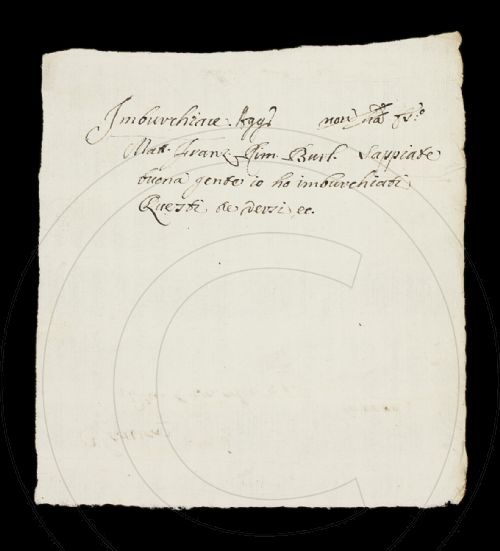 Imburchiare. Agg.
Matt. Franz. Rim. Burl. Sappiate
buona gente io ho imburchiati
Questi de versi ec.